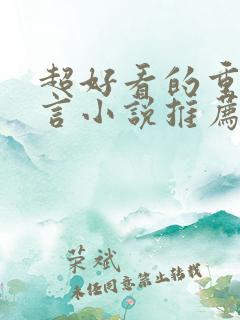 超好看的重
言小说推荐
荣斌
未经同意禁止转载